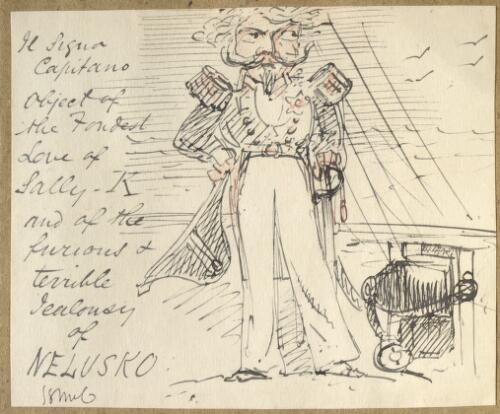 Il Signor
Capitano
object of
the Fondest
Love of
Sally - K
and of the
furious &
terrible
Jealousy
of
NELUSKO